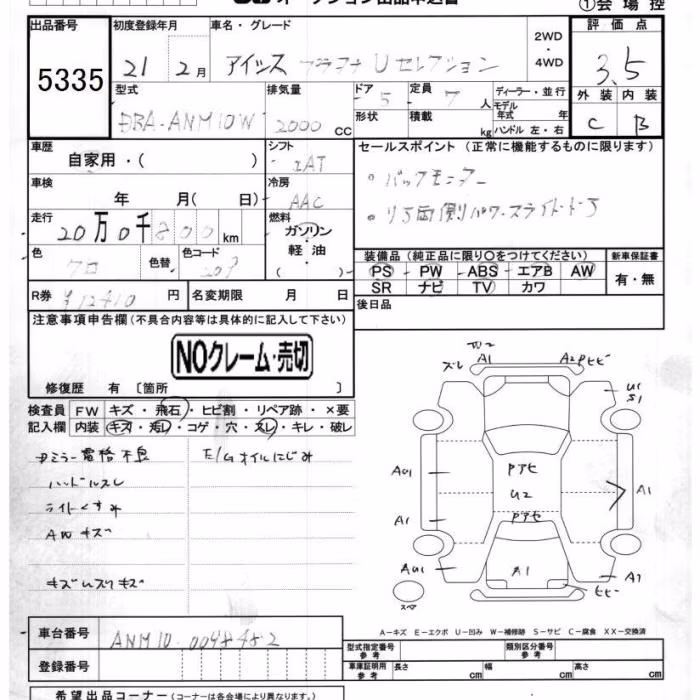 オークション出品申込書
①会場控
出品番号 初度登録年月 車名・グレード 2WD・4WD 評価点
5335 21 2月 アイシス プラタナ Uセレクション 3.5
型式 排気量 ドア 定員 ディーラー・並行 外装 内装
DBA-ANM10W 2000cc 5 7人 モデル年式 年 C B
形状 積載 kg ハンドル 左・右
車歴 シフト セールスポイント (正常に機能するものに限ります)
自家用・( ) IAT
車検 冷房 ・バックモニター
年 月(日) AAC
走行 燃料 ・リヤ両側パワースライドドア
20万0千800km ガソリン・軽油( )
色 色替 色コード 装備品 (純正品に限り○をつけてください) 新車保証書
クロ 209 PS・PW・ABS・エアB AW 有・無
SR ナビ TV カワ
R券 ¥12410円 名変期限 月 日 後日品
注意事項申告欄(不具合内容等は具体的に記入して下さい)
NOクレーム・売切
修復歴 有 [箇所 ]
検査員 FW キズ・飛石・ヒビ割・リペア跡・×要
記入欄 内装 キズ・汚れ・コゲ・穴・スレ・キレ・破レ
Dミラー電格不良 E/Gオイルにじみ
ハンドルスレ
ライトくすみ
AWキズ
キズ凹スリキズ
W2
ズレ A1 A2Pヒビ
U1
S1
AU1 Pアセ
U2 A1
A1 Pアセ
AU1 A1 A1
ヒビ
スペア
A-キズ E-エクボ U-凹み W-補修跡 S-サビ C-腐食 XX-交換済
車台番号 ANM10-0048482
型式指定番号 参考 類別区分番号 参考
登録番号 車庫証明用 参考 長さ cm 幅 cm 高さ cm
希望出品コーナー(コーナーは各会場により異なります。)